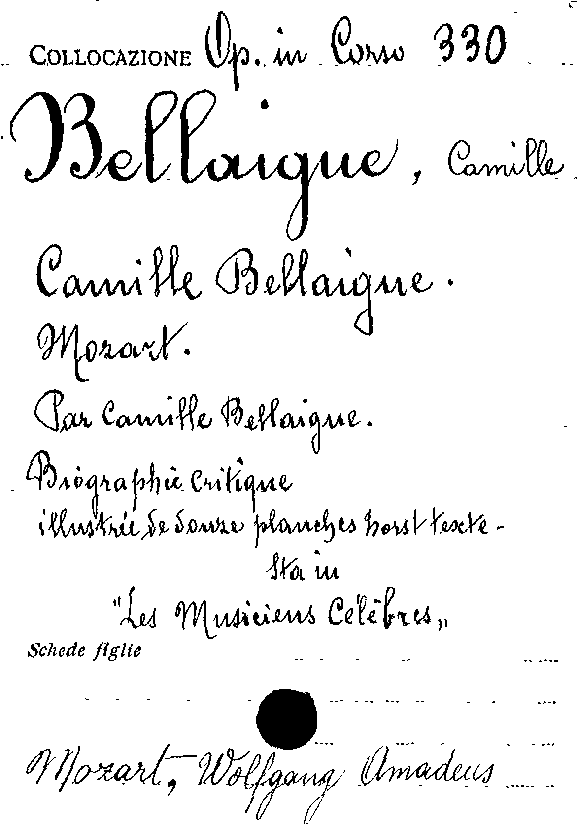 COLLOCAZIONE Op. in Corso 330
Bellaigue, Camille
Camille Bellaigue.
Mozart.
Par Camille Bellaigue.
Biographie critique
illustrée de douze planches horst texte-
Sta in
"Les Musiciens Célèbres„
Schede figlie
Mozart, Wolfgang Amadeus